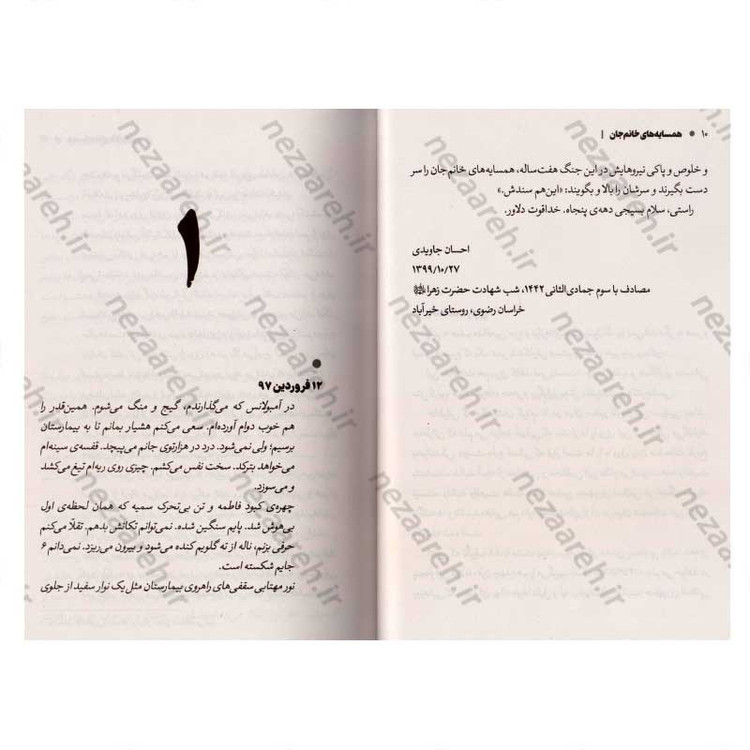 ۱۰ ● همسایه‌های خانم‌جان |
و خلوص و پاکی نیروهایش در این جنگ هفت‌ساله، همسایه‌های خانم‌جان را سر
دست بگیرند و سرشان را بالا و بگویند: «این هم سندش.»
راستی، سلام بسیجی دهه‌ی پنجاه. خداقوت دلاور.
احسان جاویدی
۱۳۹۹/۱۰/۲۷
مصادف با سوم جمادی‌الثانی ۱۴۴۲، شب شهادت حضرت زهرا
خراسان رضوی، روستای خیرآباد
۱
●
۱۲ فروردین ۹۷
در آمبولانس که می‌گذارندم، گیج و منگ می‌شوم. همین‌قدر را
هم خوب دوام آورده‌ام. سعی می‌کنم هشیار بمانم تا به بیمارستان
برسیم؛ ولی نمی‌شود. درد در هزارتوی جانم می‌پیچد. قفسه‌ی سینه‌ام
می‌خواهد بترکد. سخت نفس می‌کشم. چیزی روی ریه‌ام تیغ می‌کشد
و می‌سوزد.
چهره‌ی کبود فاطمه و تن بی‌تحرک سمیه که همان لحظه‌ی اول
بی‌هوش شد. پایم سنگین شده. نمی‌توانم تکانش بدهم. تقلّا می‌کنم
حرفی بزنم، ناله از ته گلویم کنده می‌شود و بیرون می‌ریزد. نمی‌دانم ۶
جایم شکسته است.
نور مهتابی سقفی‌های راهروی بیمارستان مثل یک نوار سفید از جلوی
nezaareh.ir